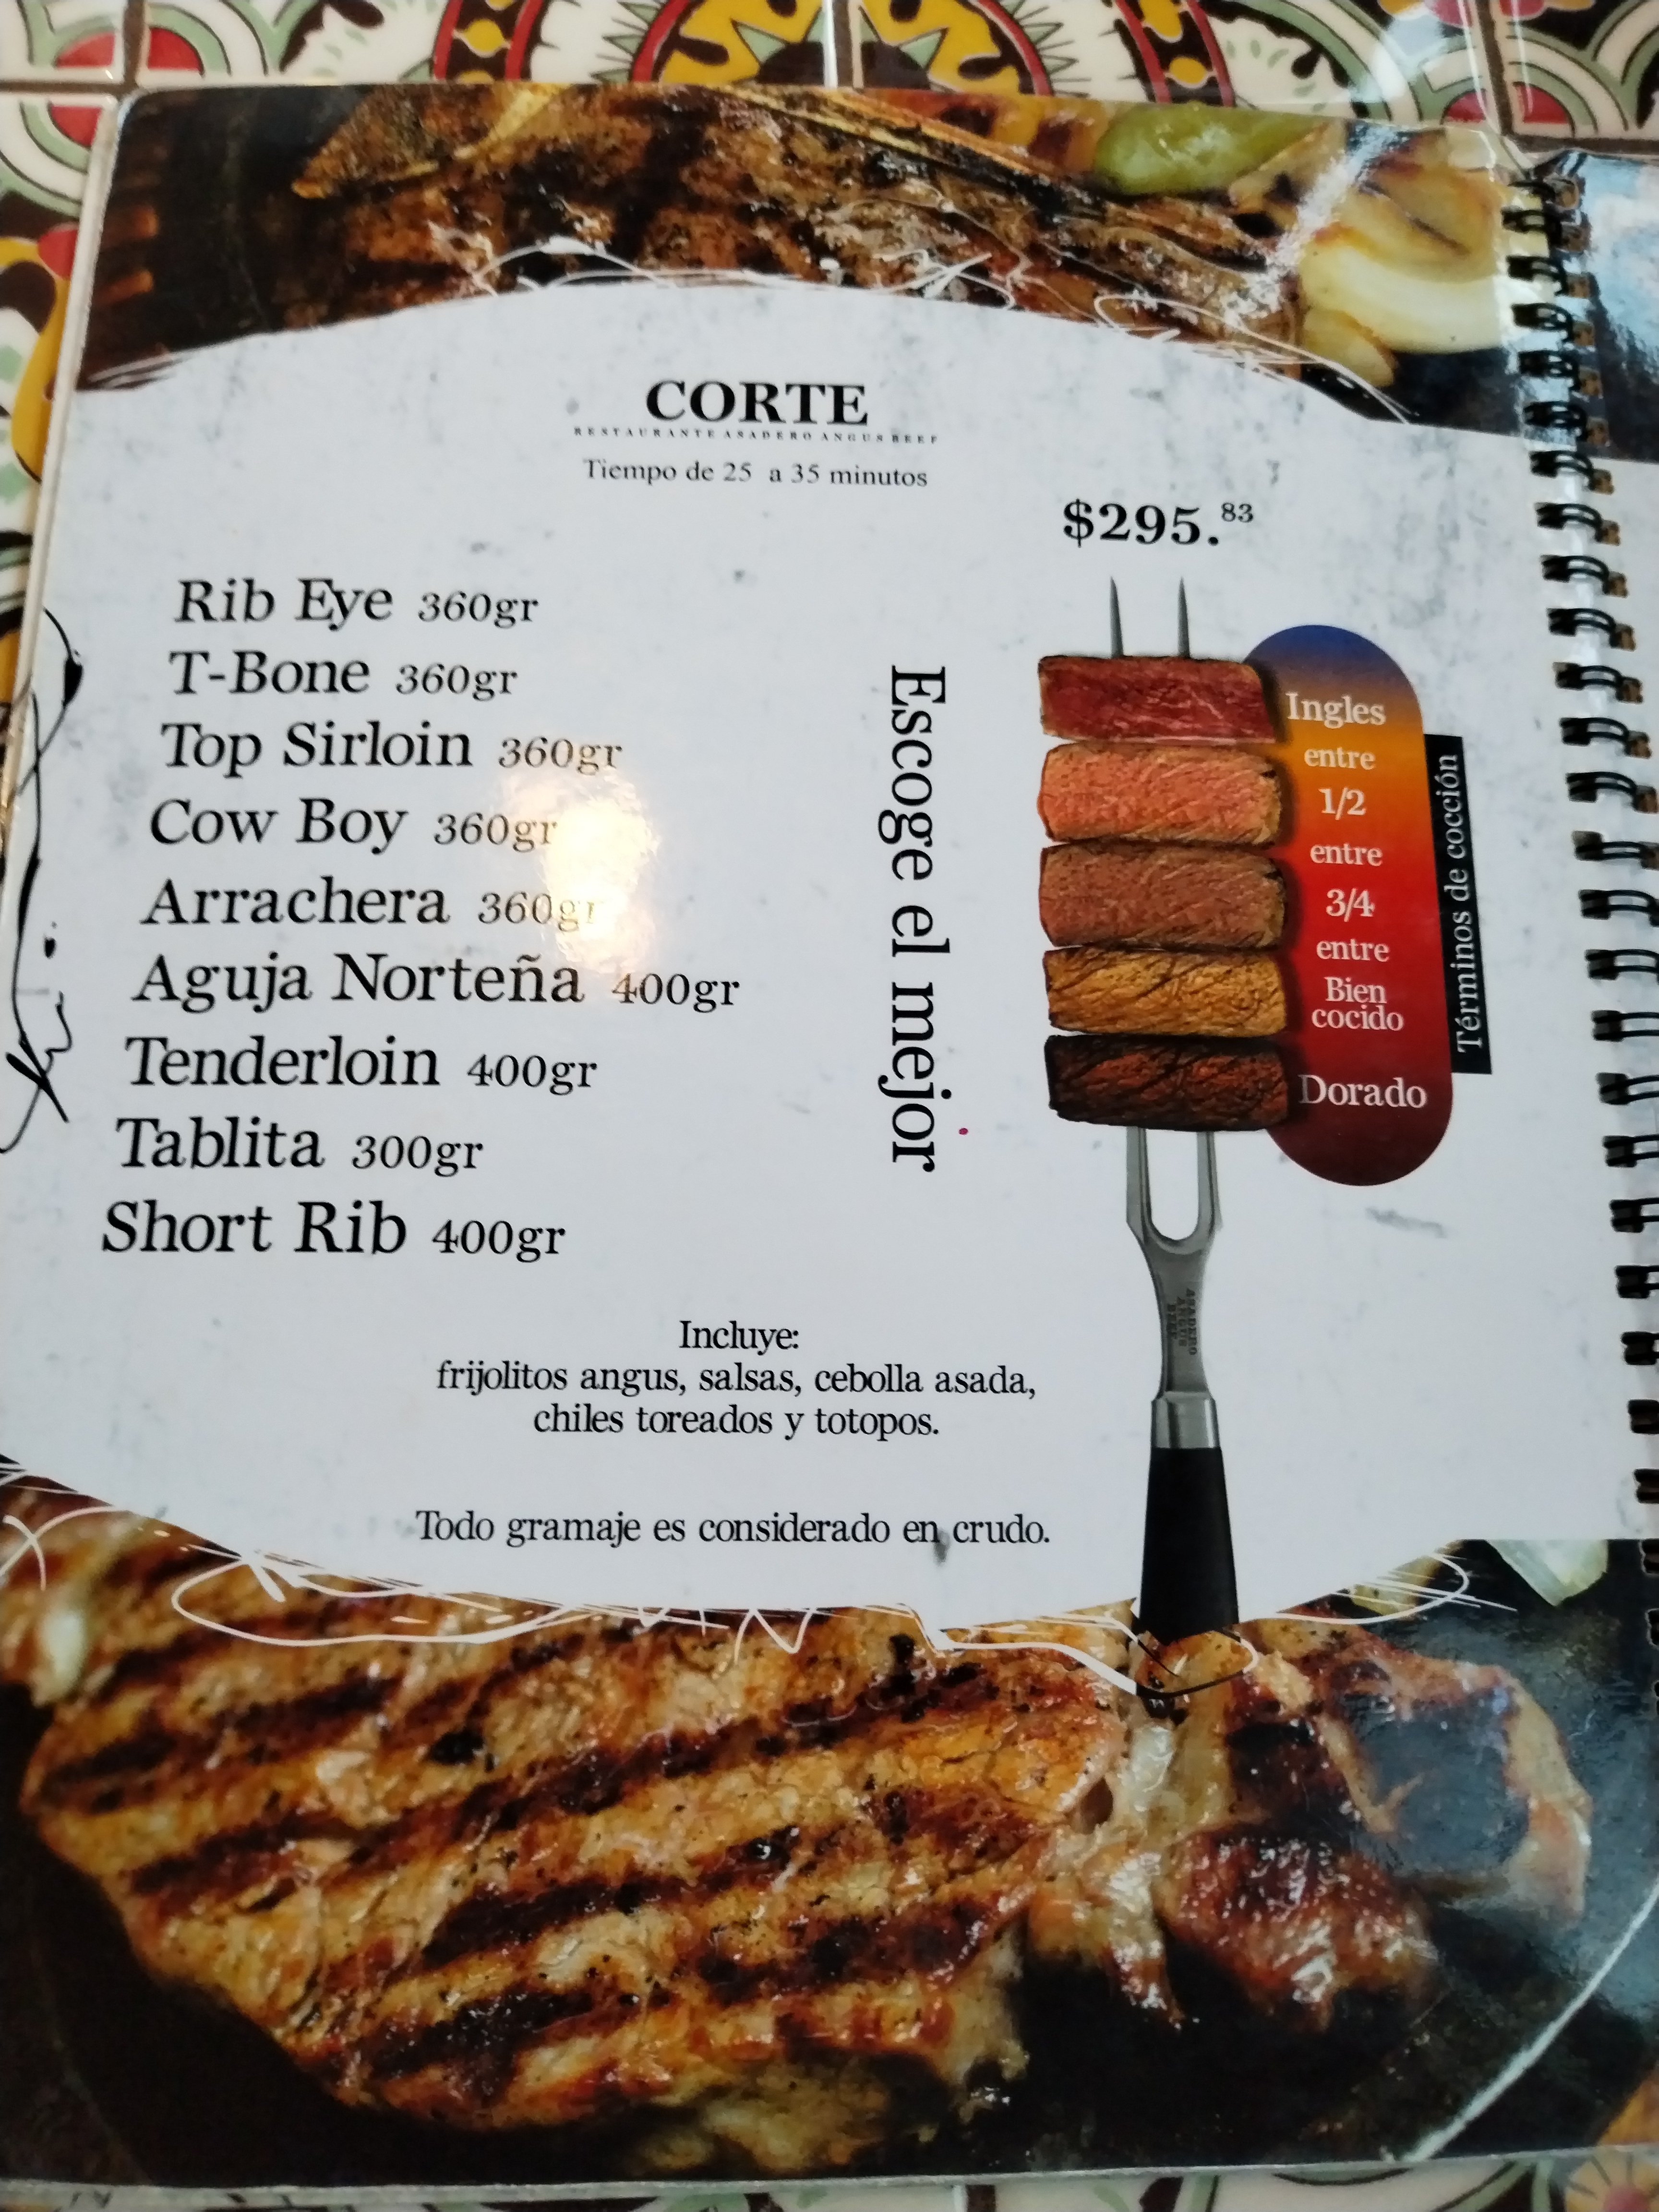 CORTE
RESTAURANTE ASADERO ANGUS BEEF
Tiempo de 25 a 35 minutos
$295.83
Rib Eye 360gr
T-Bone 360gr
Top Sirloin 360gr
Cow Boy 360gr
Arrachera 360gr
Aguja Norteña 400gr
Tenderloin 400gr
Tablita 300gr
Short Rib 400gr
Escoge el mejor
Ingles
entre
1/2
entre
3/4
entre
Bien
cocido
Dorado
Términos de cocción
ASADERO
ANGUS
BEEF
Incluye:
frijolitos angus, salsas, cebolla asada,
chiles toreados y totopos.
Todo gramaje es considerado en crudo.